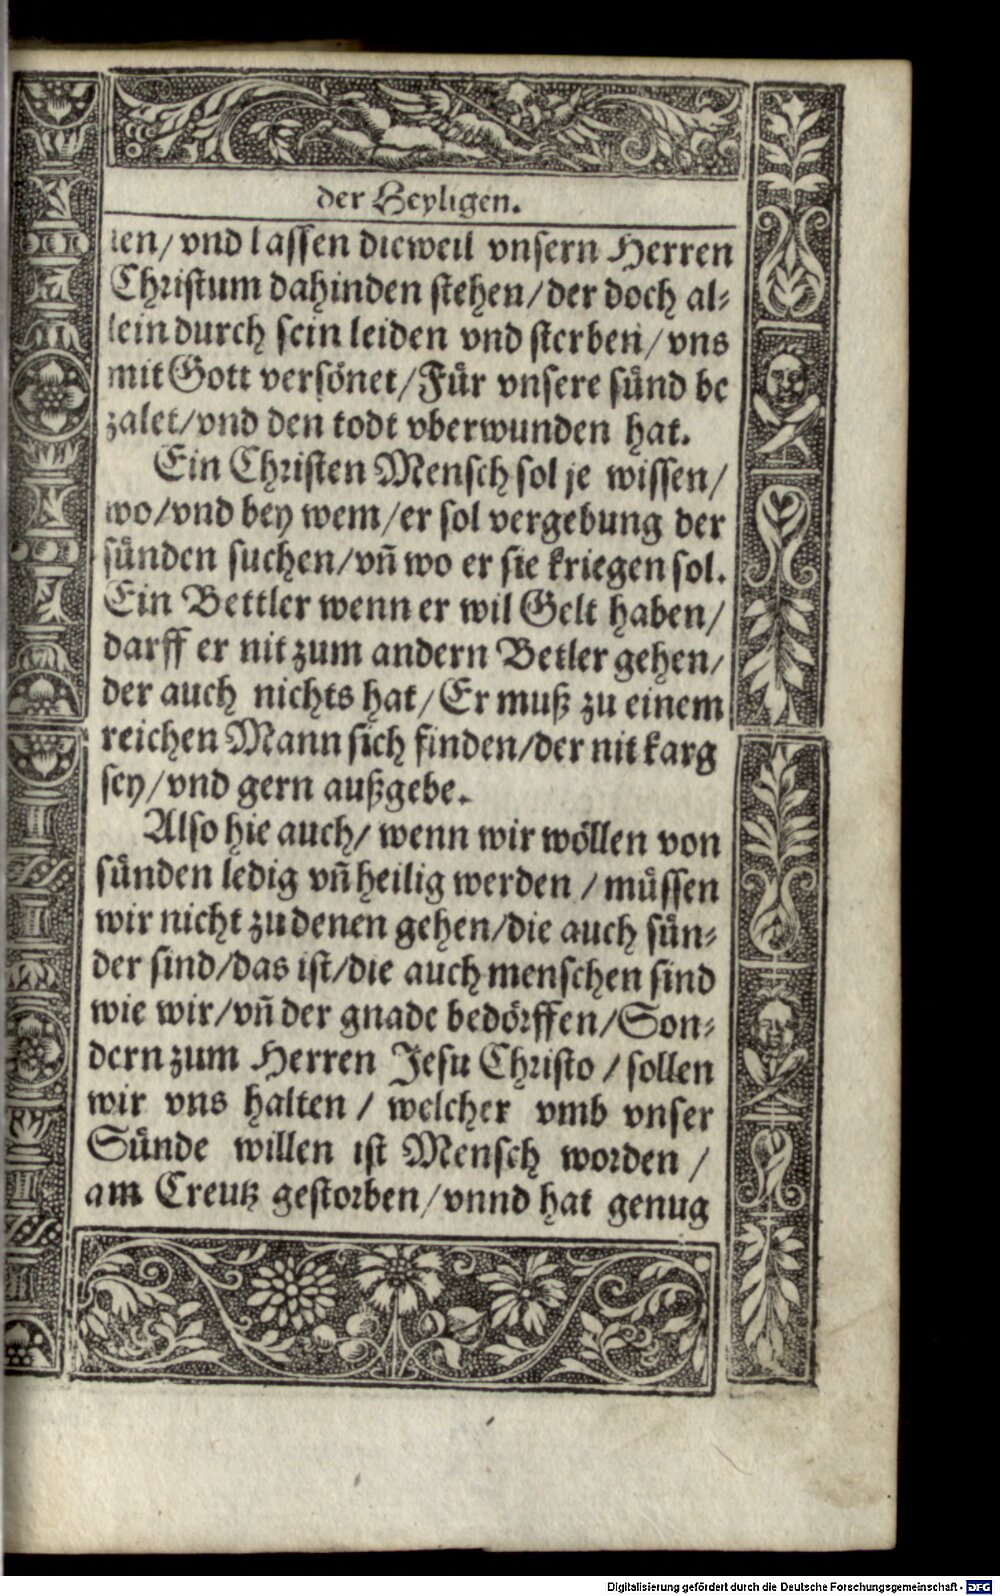 der Heyligen.
len/ vnd lassen dieweil vnsern Herren
Christum dahinden stehen/ der doch al⸗
lein durch sein leiden vnd sterben/ vns
mit Gott versönet/ Für vnsere sünd be
zalet/ vnd den todt vberwunden hat.
Ein Christen Mensch sol je wissen/
wo/ vnd bey wem/ er sol vergebung der
sünden suchen/ vñ wo er sie kriegen sol.
Ein Bettler wenn er wil Gelt haben/
darff er nit zum andern Betler gehen/
der auch nichts hat/ Er muß zu einem
reichen Mann sich finden/ der nit karg
sey/ vnd gern außgebe.
Also hie auch/ wenn wir wöllen von
sünden ledig vñ heilig werden / müssen
wir nicht zu denen gehen/ die auch sün⸗
der sind/ das ist/ die auch menschen sind
wie wir/ vñ der gnade bedörffen/ Son⸗
dern zum Herren Jesu Christo / sollen
wir vns halten / welcher vmb vnser
Sünde willen ist Mensch worden /
am Creutz gestorben/ vnnd hat genug
Digitalisierung gefördert durch die Deutsche Forschungsgemeinschaft - DFG